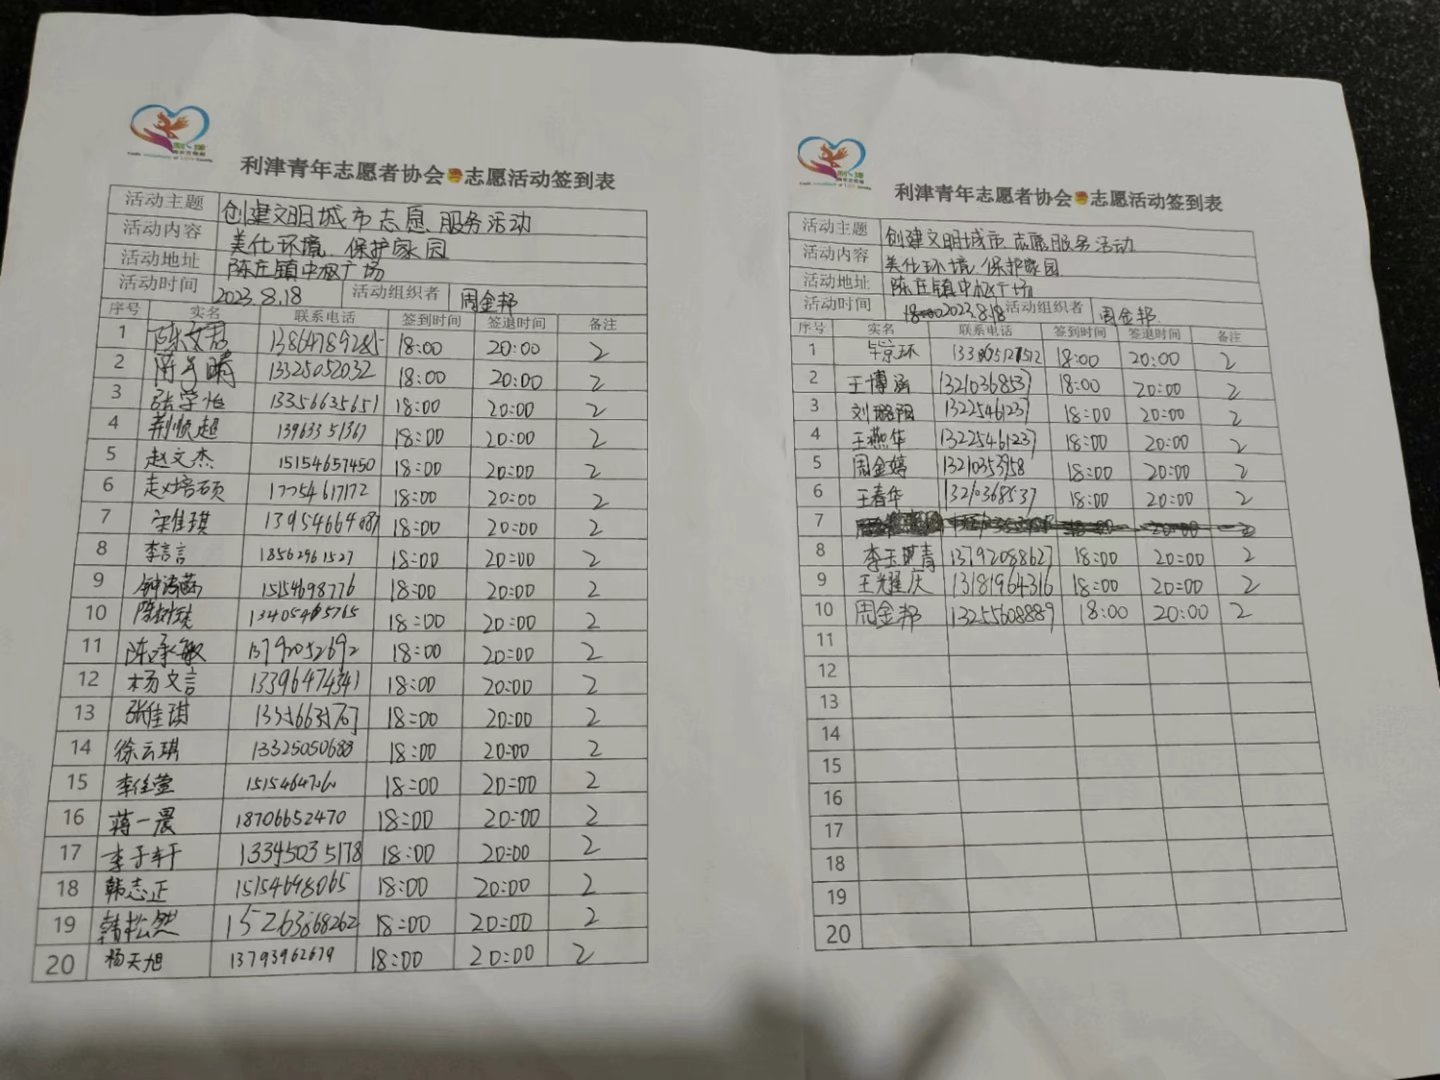 利津青年志愿者协会志愿活动签到表
活动主题 创建文明城市志愿服务活动
活动内容 美化环境、保护家园
活动地址 陈庄镇中心广场
活动时间 2023.8.18 活动组织者 周金邦
序号 实名 联系电话 签到时间 签退时间 备注
1 陈文君 13864789285 18:00 20:00 2
2 13325052032 18:00 20:00 2
3 张学怡 13356635651 18:00 20:00 2
4 荆顺超 13963351367 18:00 20:00 2
5 赵文杰 15154657450 18:00 20:00 2
6 赵培硕 17754617172 18:00 20:00 2
7 宋佳琪 13954664087 18:00 20:00 2
8 李言言 18562961527 18:00 20:00 2
9 15154698776 18:00 20:00 2
10 18:00 20:00 2
11 陈承敏 13792052692 18:00 20:00 2
12 杨文言 13396474341 18:00 20:00 2
13 张佳琪 18:00 20:00 2
14 徐云琪 13325050688 18:00 20:00 2
15 李佳萱 18:00 20:00 2
16 蒋一晨 18706652470 18:00 20:00 2
17 李子轩 13345035178 18:00 20:00 2
18 韩志正 15154698065 18:00 20:00 2
19 韩松然 15263868262 18:00 20:00 2
20 杨天旭 13793962679 18:00 20:00 2
利津青年志愿者协会志愿活动签到表
活动主题 创建文明城市志愿服务活动
活动内容 美化环境、保护家园
活动地址 陈庄镇中心广场
活动时间 2023.8.18 活动组织者 周金邦
序号 实名 联系电话 签到时间 签退时间 备注
1 毕京环 18:00 20:00 2
2 王博涵 13210368537 18:00 20:00 2
3 刘璐阳 13225461237 18:00 20:00 2
4 王燕华 13225461237 18:00 20:00 2
5 周金婷 18:00 20:00 2
6 王春华 13210368537 18:00 20:00 2
7
8 李玉青 13792088627 18:00 20:00 2
9 王耀庆 13181964316 18:00 20:00 2
10 周金邦 13255608889 18:00 20:00 2
11
12
13
14
15
16
17
18
19
20